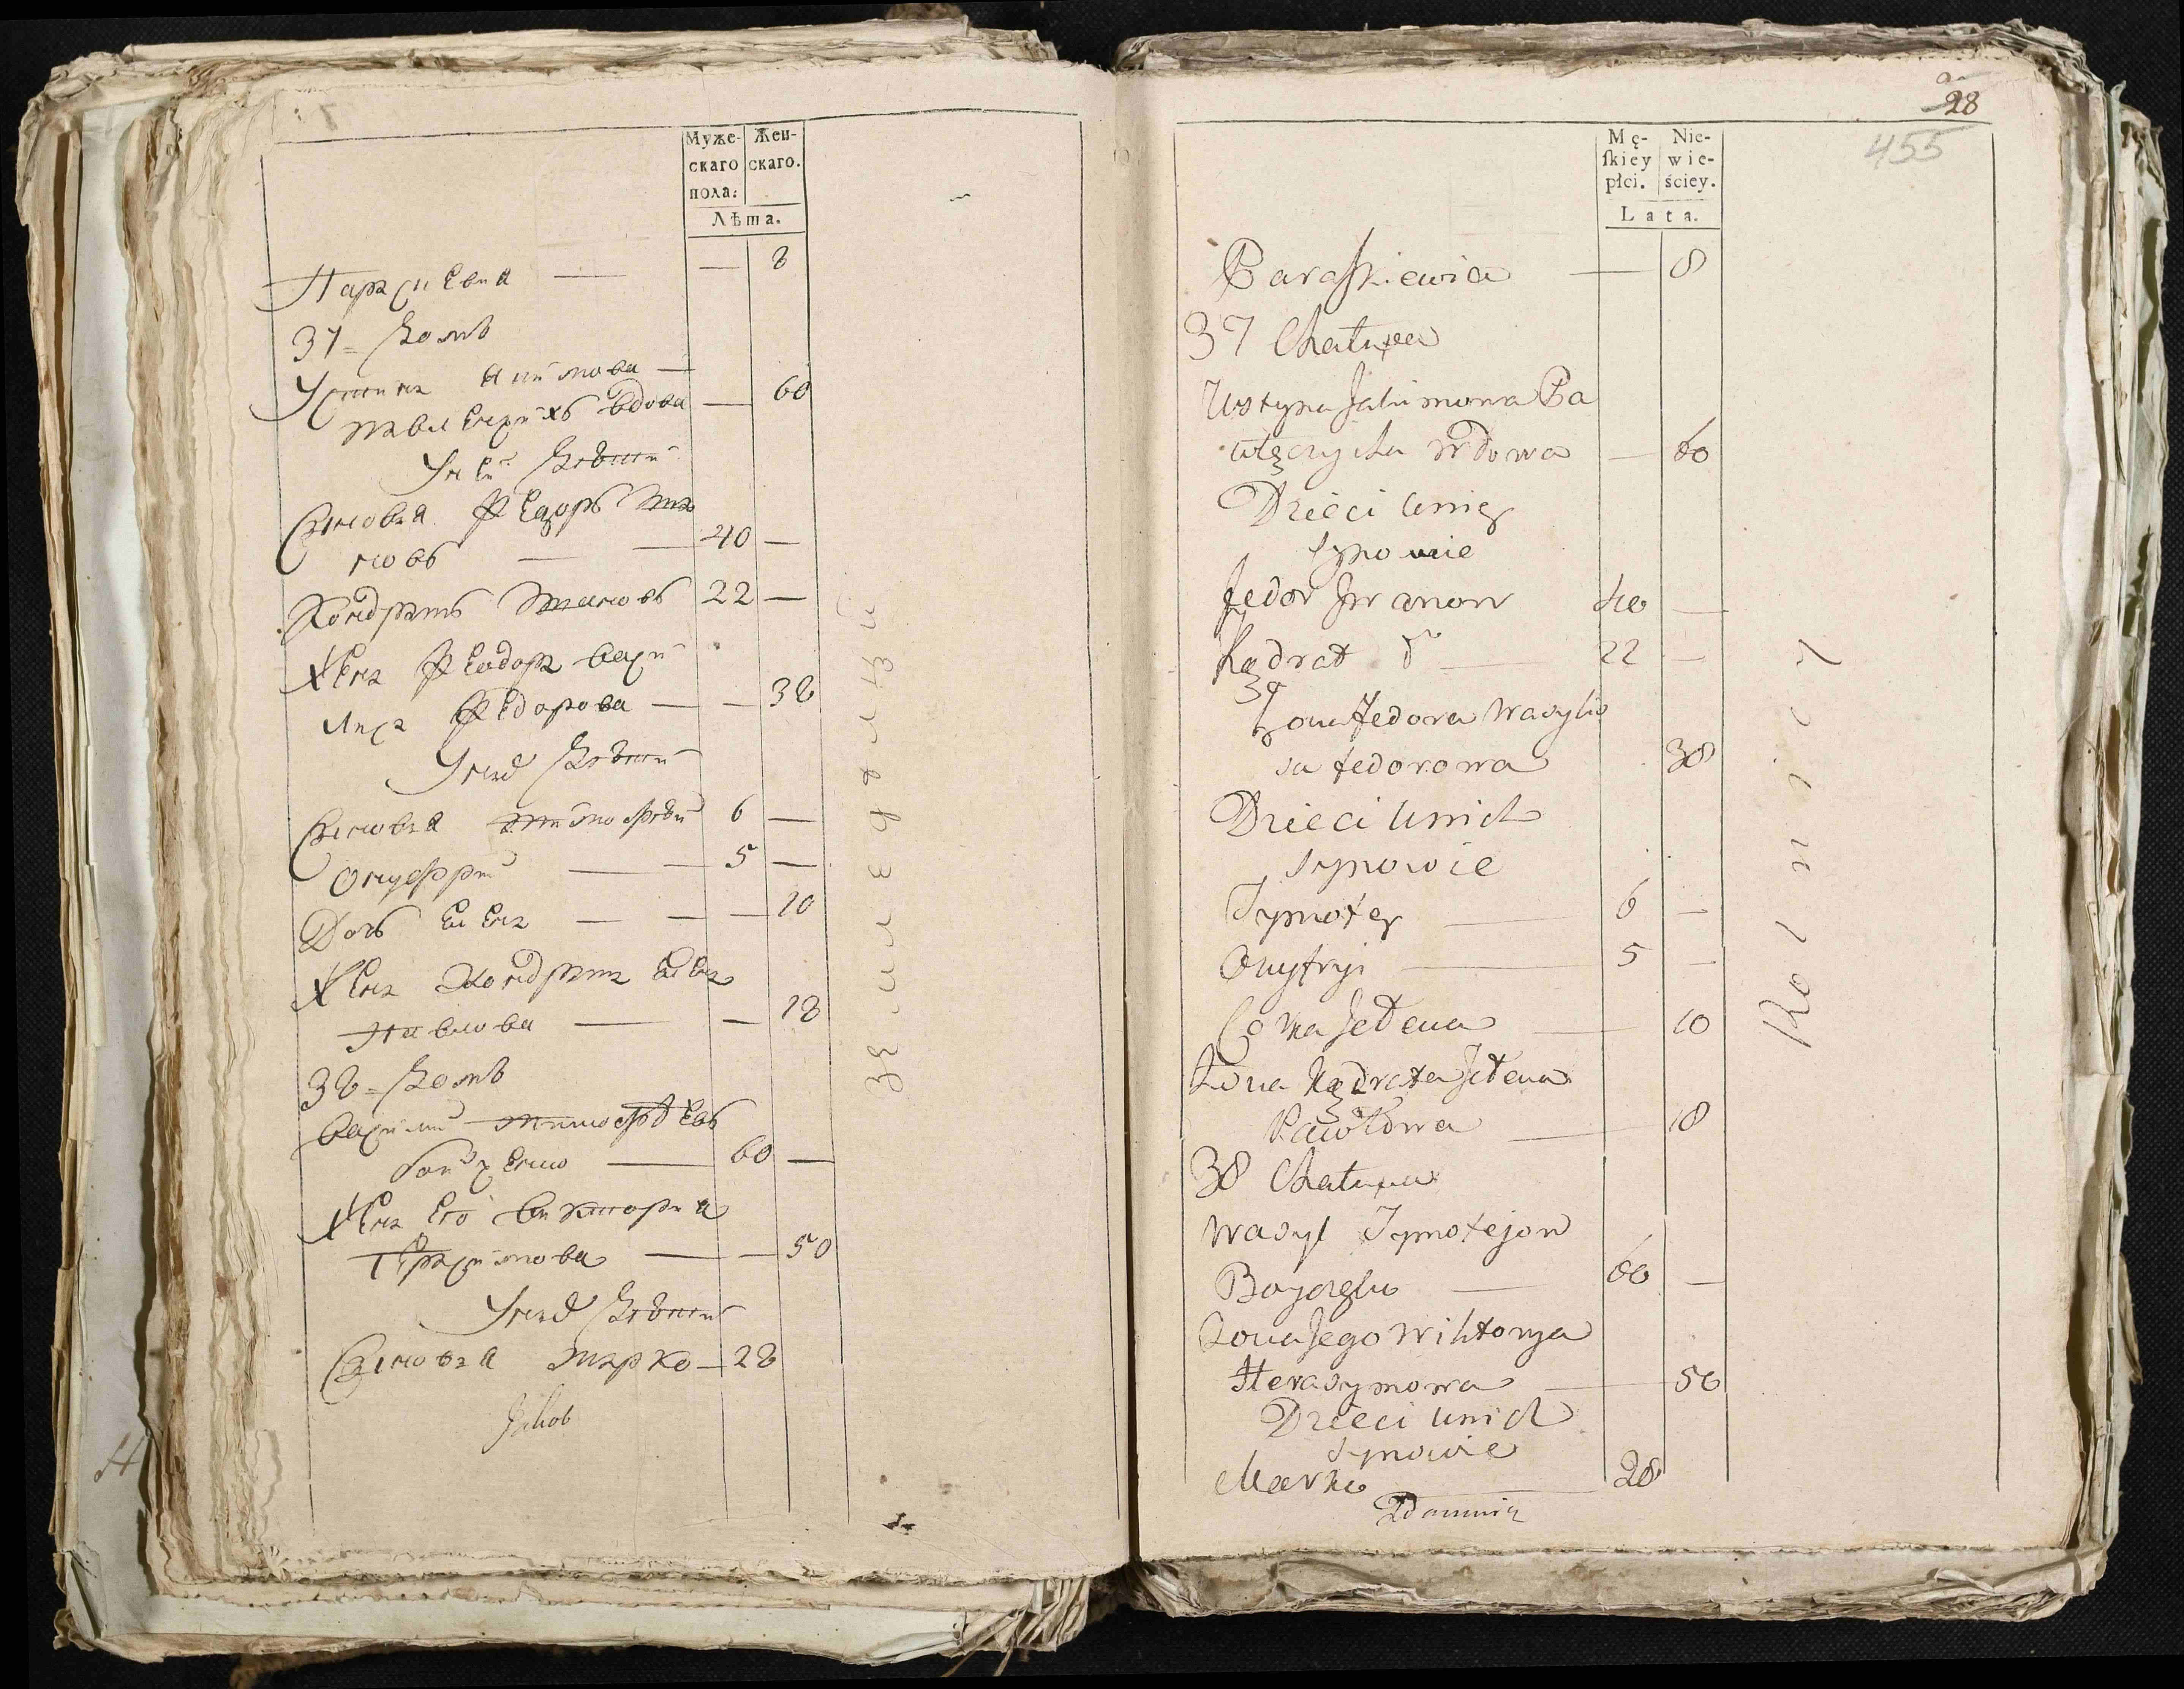 Муже- Жен-
скаго скаго.
пола:
Лѣта.
Параскевиа — — 8
37= Домъ
Устина
вдова — 60
У ней Дѣтии
Сыновья Федоръ Ива
новъ — 40 —
Кондратъ Ивановъ 22 —
Жена Федора Васи
лиса Федорова — — 38
У нихъ Дѣтии
Сыновья Тимофѣй 6 —
Онуфрий — 5 —
Дочь Елена — — — 10
Жена Кондрата Елена
Павлова — — 18
38= Домъ
Василий Тимофѣевъ
Бойченко — 60 —
Жена Его Виктория
Герасимова — — 50
У нихъ Дѣтии
Сыновья Марко — 28
Jakob
28
455
Mę- Nie-
skiey wie-
płci. ściey.
Lata.
Paraskiewia — — 8
37 Chatupa
Ustyna Jakimowa Pa
wlęczycha Wdowa — 60
Dzieci Uniey
Synowie
Fedor Jwanow 40 —
Kądrat — 22 —
Żona Fedora Wasyli
sa Fedorowa 38
Dzieci Unich
Synowie
Tymotey — 6 —
Onufryi — 5 —
Corka Jełena — 10
Żona Kądrata Jełena
Pawłowa — 18
38 Chatupa
Wasyl Tymotejow
Boyczęko — 60 —
Żona Jego Wiktorya
Herasymowa — 50
Dzieci Unich
Synowie
Marko — 28
Rolnicy